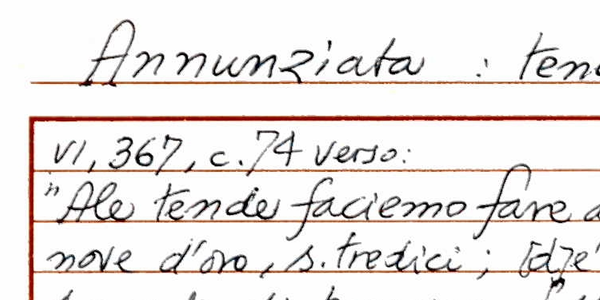 Annunziata : tend
VI, 367, c. 74 verso:
"Ale tende faciemo fare a
nove d'oro, s. tredici; [d]e'